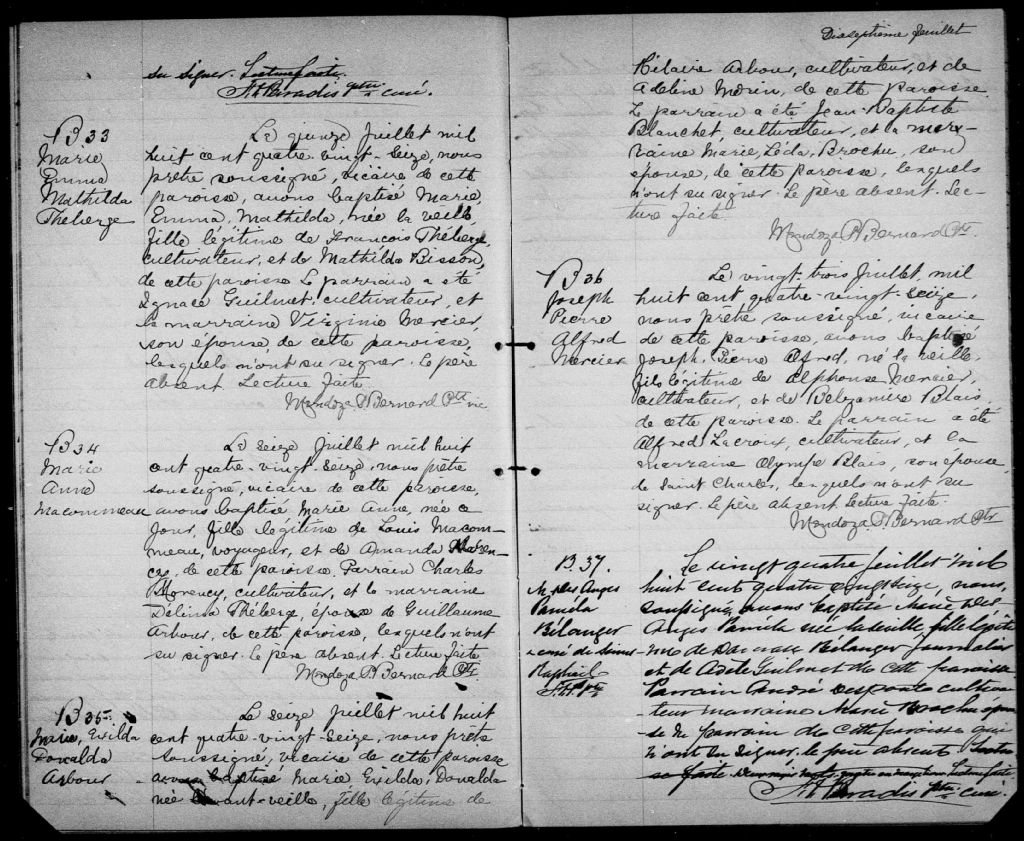 su signer. Lecture faite.
ptre curé.
B 33
Marie
Emma
Mathilda
Théberge
Le quinze Juillet mil
huit cent quatre-vingt-seize, nous
prêtre soussigné, vicaire de cette
paroisse, avons baptisé Marie,
Emma, Mathilda, née la veille
fille légitime de François Théberge,
cultivateur, et de Mathilda Bisson,
de cette paroisse. Le parrain a été
Ignace Guilmet, cultivateur, et
la marraine Virginie Mercier,
son épouse, de cette paroisse,
lesquels n'ont su signer. Le père
absent. Lecture faite.
Mendoza P. Bernard Ptre vic
B 34
Marie
Anne
Macommeau
Le seize Juillet mil huit
cent quatre-vingt-seize, nous prêtre
soussigné, vicaire de cette paroisse,
avons baptisé Marie Anne, née ce
jour, fille légitime de Louis Macom-
meau, voyageur, et de Amanda
de cette paroisse. Parrain Charles
cultivateur, et la marraine
Délima Théberge, épouse de Guillaume
Arbour, de cette paroisse, lesquels n'ont
su signer. Le père absent. Lecture faite
Mendoza P. Bernard Ptr
B 35
Marie, Exilda
Donalda
Arbour
Le seize Juillet mil huit
cent quatre-vingt-seize, nous prêtre
soussigné, vicaire de cette paroisse
avons baptisé Marie Exilda, Donalda
née avant-veille, fille légitime de
Dixseptième feuillet
Hilaire Arbour, cultivateur, et de
Adeline Morin, de cette paroisse.
Le parrain a été Jean-Baptiste
Blanchet, cultivateur, et la mar-
raine Marie, Léda, Brochu, son
épouse, de cette paroisse, lesquels
n'ont su signer. Le père absent. Lec-
ture faite
Mendoza P. Bernard Ptr
B 36
Joseph
Pierre
Alfred
Mercier
Le vingt-trois Juillet, mil
huit cent quatre-vingt-seize,
nous prêtre soussigné, vicaire
de cette paroisse, avons baptisé
Joseph, Pierre Alfred, né la veille,
fils légitime de Alphonse Mercier,
cultivateur, et de Belzanire Blais,
de cette paroisse. Le parrain a été
Alfred Lacroix, cultivateur, et la
marraine Olympe Blais, son épouse
de Saint Charles, lesquels n'ont su
signer. Le père absent. Lecture faite.
Mendoza P. Bernard Ptr
B. 37.
M. des Anges
Paméla
Bélanger
Raphaël
Le vingt quatre juillet mil
huit cent quatre vingt seize, nous,
soussigné, avons baptisé Marie des
Anges Paméla née la veille, fille légiti
me de Bélanger journalier
et de Adèle Guilmet de cette paroisse
Parrain André cultiva
teur marraine Marie épou-
se du parrain de cette paroisse qui
n'ont su signer. le père absent. Lectu
re faite. Lecture faite.
ptre curé.